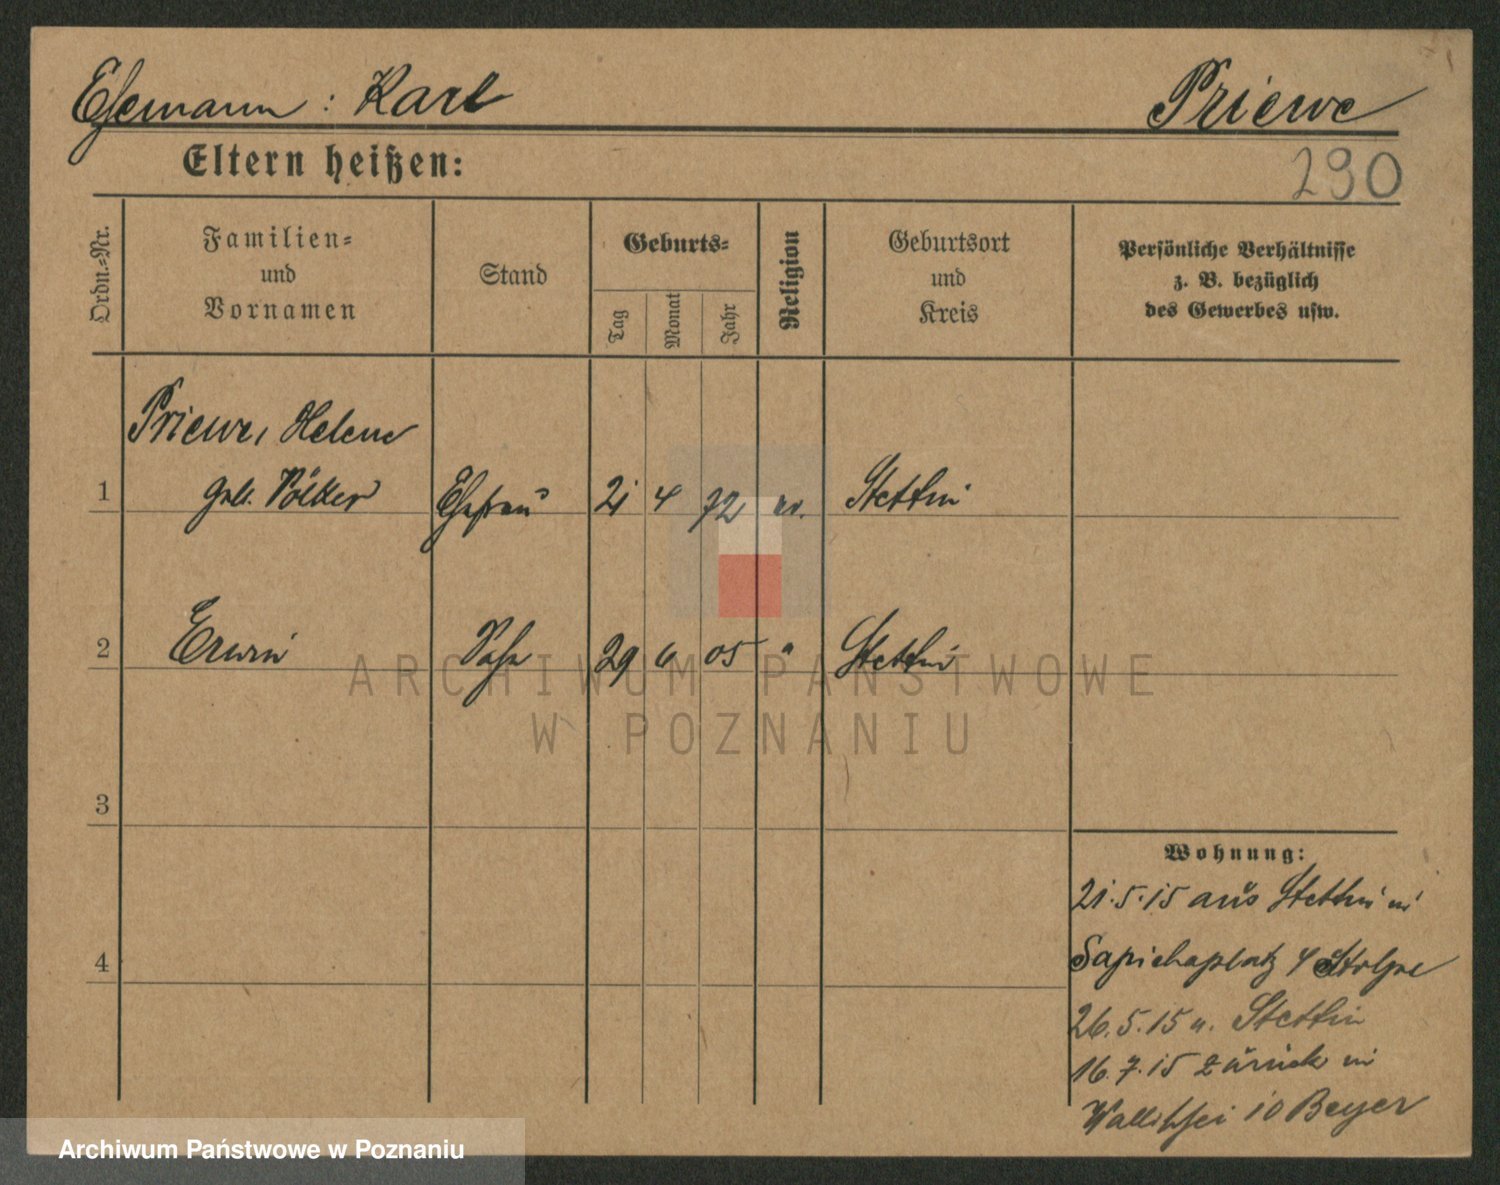 Ehemann: Karl Priewe
Eltern heißen:
290
Ordn.-Nr.
Familien-
und
Vornamen
Stand
Geburts-
Tag
Monat
Jahr
Religion
Geburtsort
und
Kreis
Persönliche Verhältnisse
z. B. bezüglich
des Gewerbes usw.
Priewe, Helene
1 geb. Völker Ehefrau 21 4 72 ev. Stettin
2 Erwin Sohn 29 6 05 " Stettin
3
4
Wohnung:
21.5.15 aus Stettin in
Sapiehaplatz 4 Stolpe
26.5.15 n. Stettin
16.7.15 zurück in
Wallischei 10 Beyer
ARCHIWUM PAŃSTWOWE
W POZNANIU
Archiwum Państwowe w Poznaniu